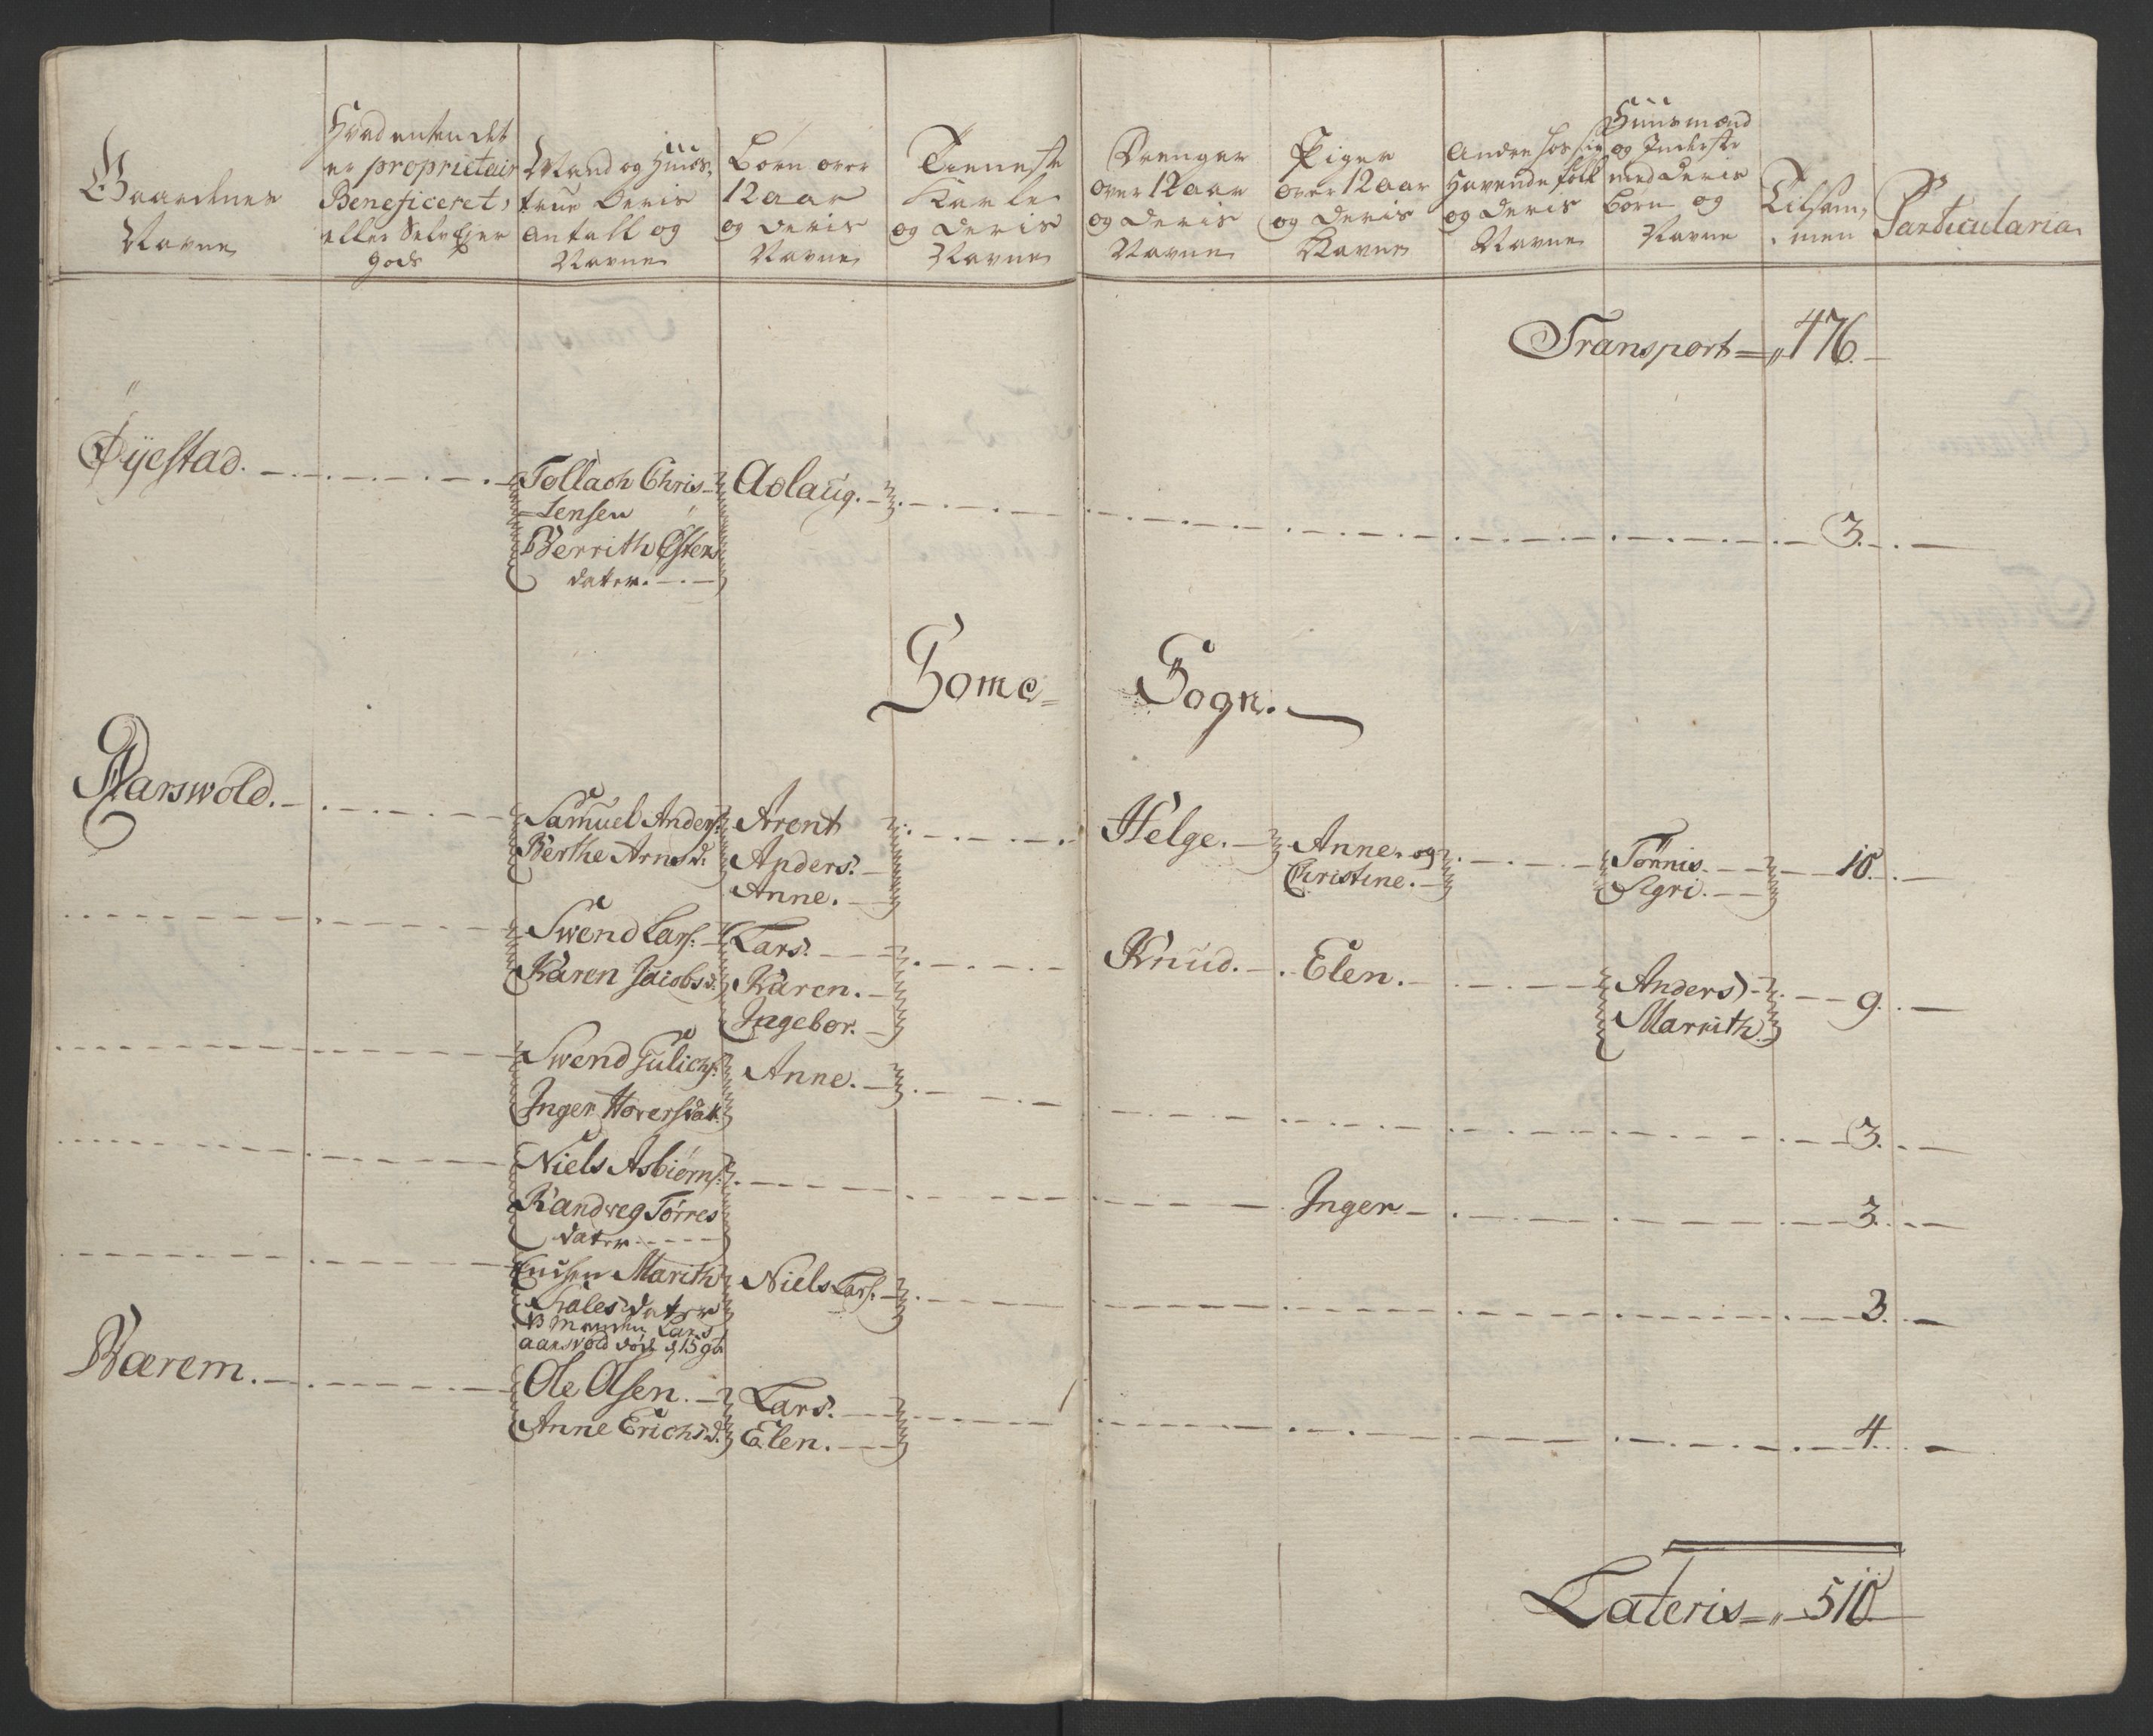 Gaardenes
Navne
Hvad enten det
er proprietair
Beneficeret,
eller Selv Ejer
gods
Mand og Huus,
true Deris
Antall og
Navne
Børn over
12 aar
og Deris
Navne
Tieneste
Karle
og Deris
Navne
Drenger
over 12 aar
og Deris
Navne
Piger
over 12 aar
og Deris
Navne
Andre hos sig
Havende folk
og Deris
Navne
Huusmænd
og Inderste
med Deris
Børn og
Navne
Tilsam,
men
Particularia
Transport = „ 476.
Øÿestad.
Tollach Chris-
=Tensen
Berrith Østens
dater.
Aslaug.
3.
Some= Sogn.
Aarswold.
Samuel Anders:
Berthe Arnesd.
Arent
Anders.
Anne.
Helge.
Anne. og
Christine.
Tønnis.
Sigri.
10.
Swend Lars:
Karen Jacobsd.
Lars.
Karen.
Ingebor.
Knud.
Elen.
Anders
Marrith.
9.
Swend Gulichs:
Inger Hoversdat.
Anne.
3.
Niels Asbiørns:
Randveg Torres
dater
Inger
3.
Enchen Marith
dater
Manden Lars
aarsvold døde d, 15 9b
Niels Lars:
3.
Bærem.
Ole Olsen.
Anne Erichsd.
Lars.
Elen.
4.
Lateris = „ 510